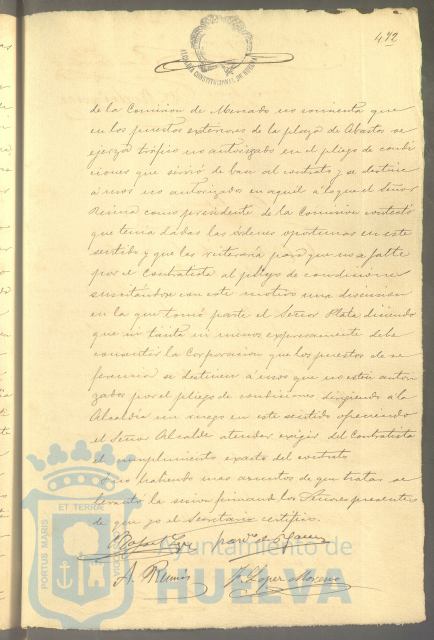 472
ALCALDIA CONSTITUCIONAL DE HUELVA
de la Comision de Mercado no consienta que
en los puestos exteriores de la plaza de Abastos se
ejerza tráfico no autorizado en el pliego de condi
ciones que sirvió de base al contrato y se destine
á usos no autorizados en aquel á lo que el Señor
como presidente de la Comision contestó
que tenia dadas las órdenes oportunas en este
sentido y que las reiteraria para que no se falte
por el Contratista al pliego de condiciones
suscitandose con este motivo una discusion
en la que tomó parte el Señor Plata diciendo
que ni tacita ni menos expresamente debe
consentir la Corporacion que los puestos de re
ferencia se destinen á usos que no estén autori
zados por el pliego de condiciones dirigiendo á la
Alcaldia un ruego en este sentido ofreciendo
el Señor Alcalde atender exigir del Contratista
el cumplimiento exacto del contrato
no habiendo mas asuntos de que tratar se
levantó la sesion firmando los Señores presentes
de que yo el Secretario certifico.
A.
J. Lopez Moreno
PORTUS MARIS
ET TERRAE
Ayuntamiento de
HUELVA